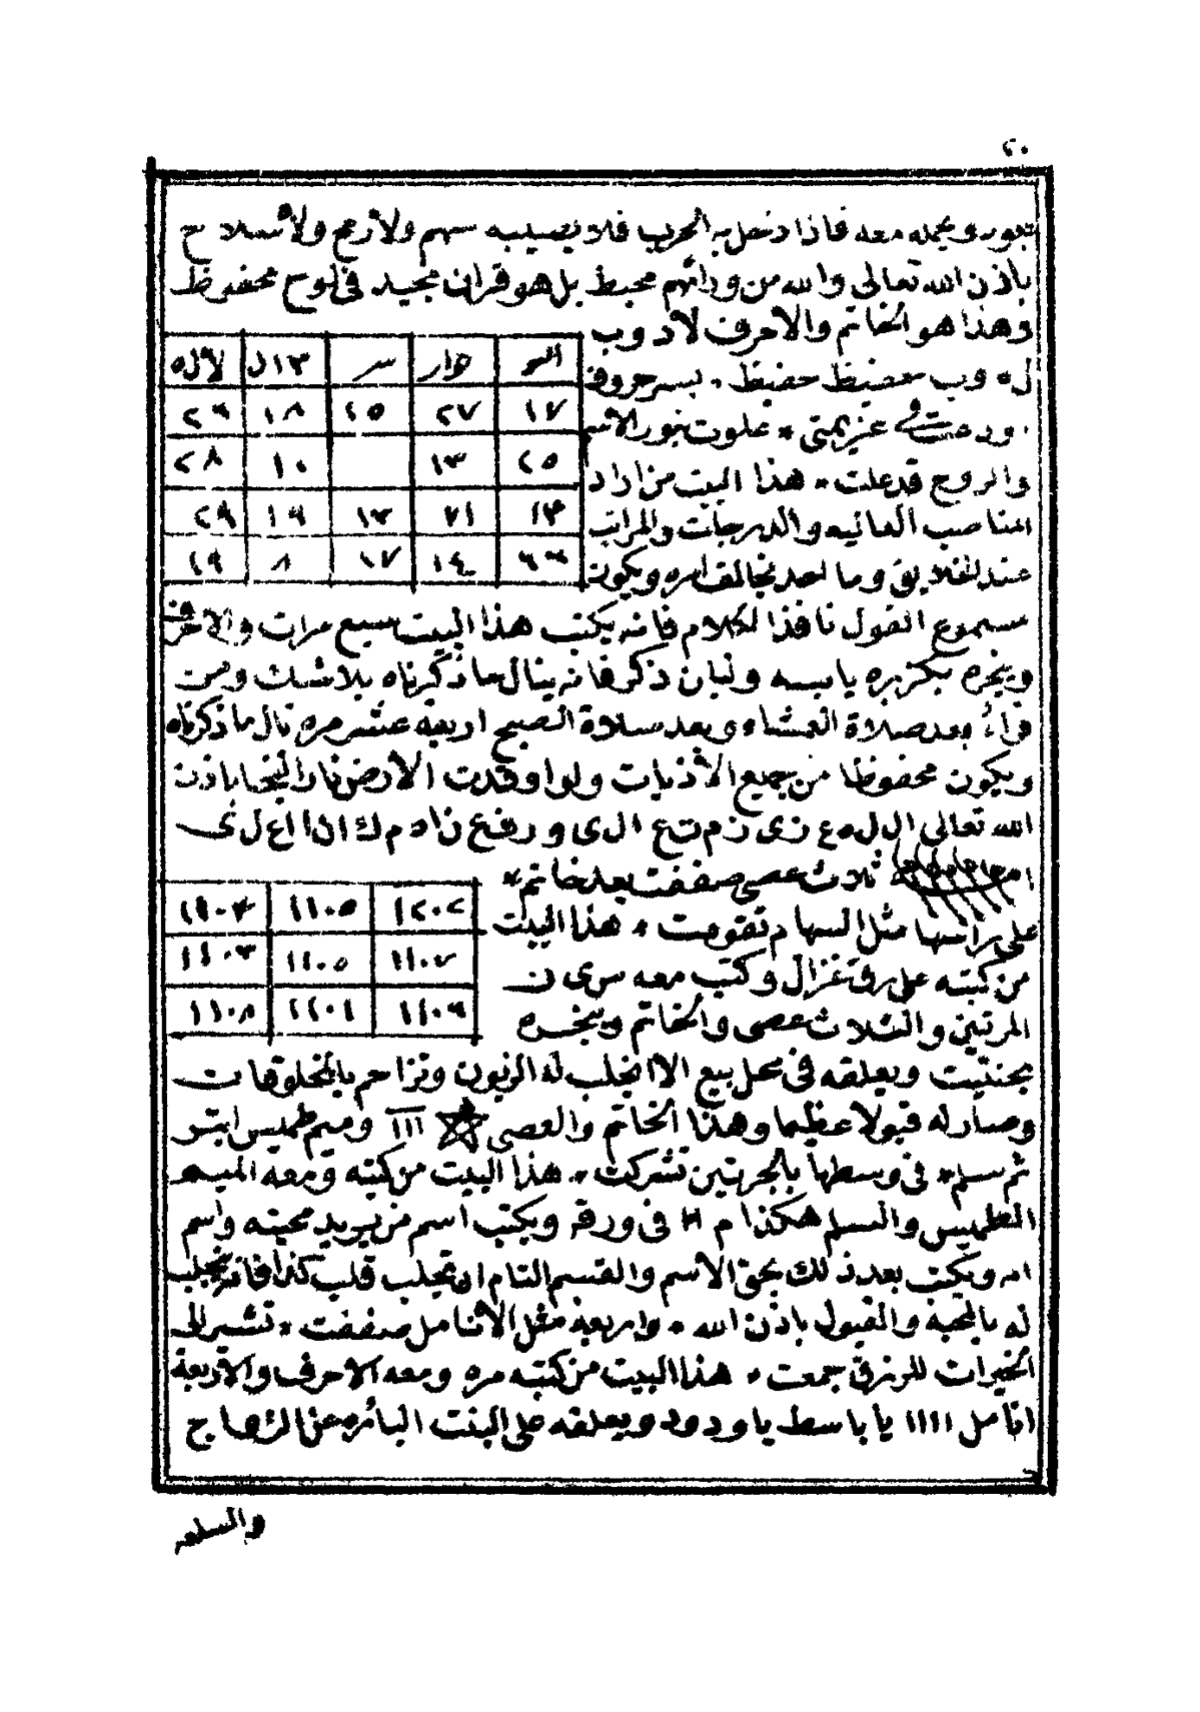 ٢٠
ويحمله معه فاذا دخل به الحرب فلا يصيبه سهم ولا رمح ولا سلاح
باذن الله تعالى والله من ورائهم محيط بل هو قران مجيد في لوح محفوظ
وهذا هو الخاتم والاحرف لا د و ب
ل ه و ب حفيظ حفيظ ٠ بسر حروف
عزيمتي * علوت بنور الاسم
والروح قد علت * هذا البيت من اراد
المناصب العاليه والدرجات والمراتب
عند الخلايق وما احد يخالف امره ويكون
١٣ ال لا اله
١٧ ٢٧ ١٥ ١٨ ٢٦
٢٥ ١٣ ١٠ ٢٨
١٤ ٢١ ١٣ ١٦ ٢٩
٦٦ ١٤ ١٧ ٨ ١٩
مسموع القول نافذ الكلام فانه يكتب هذا البيت سبع مرات والاحرف
ويبخره بكزبره يابسه ولبان ذكر فانه ينال ما ذكرناه بلا شك ومن
قراه بعد صلاة العشاء وبعد صلاة الصبح اربعة عشر مره نال ما ذكرناه
ويكون محفوظا من جميع الأذيات ولو اوقدت الأرض نارا لنجا باذن
الله تعالى ال ل ه ع ز ى ز م ت ع ال ى و ر ف ع ن ا ه م ك ا ن ا ا ع ل ى
ثلاث عصي صففت بعد خاتم *
على راسها مثل السهام تقومت * هذا البيت
من كتبه على رق غزال وكتب معه س ر ى ن
المرتين والثلاث عصي والخاتم ويبخره
١٢٠٢ ١١٠٥ ١٩٠٤
١١٠٧ ١١٠٥ ١١٠٣
١١٠٦ ١١٠١ ١١٠٨
بحنتيت ويعلقه في محل بيع الا انجلب له الزبون وتزاحم بالمخلوقات
وصار له قبولا عظيما وهذا الخاتم والعصي ااا وميم طميس ابتر
ثم سلم * في وسطها بالجرتين تشركت * هذا البيت من كتبه ومعه الميم
الطميس والسلم هكذا م # في ورقه ويكتب اسم من يريد محبته واسم
امه ويكتب بعد ذلك بحق الاسم والقسم التام ان تجلب قلب كذا فانه نجلب
له بالمحبة والقبول باذن الله * واربعة مثل الأنامل صففت * تشير الى
الخيرات للرزق جمعت * هذا البيت من كتبه مره ومعه الاحرف والاربعة
انامل اااا يا باسط يا ودود ويعلقه على البنت البائره عن الزواج
والسلعه